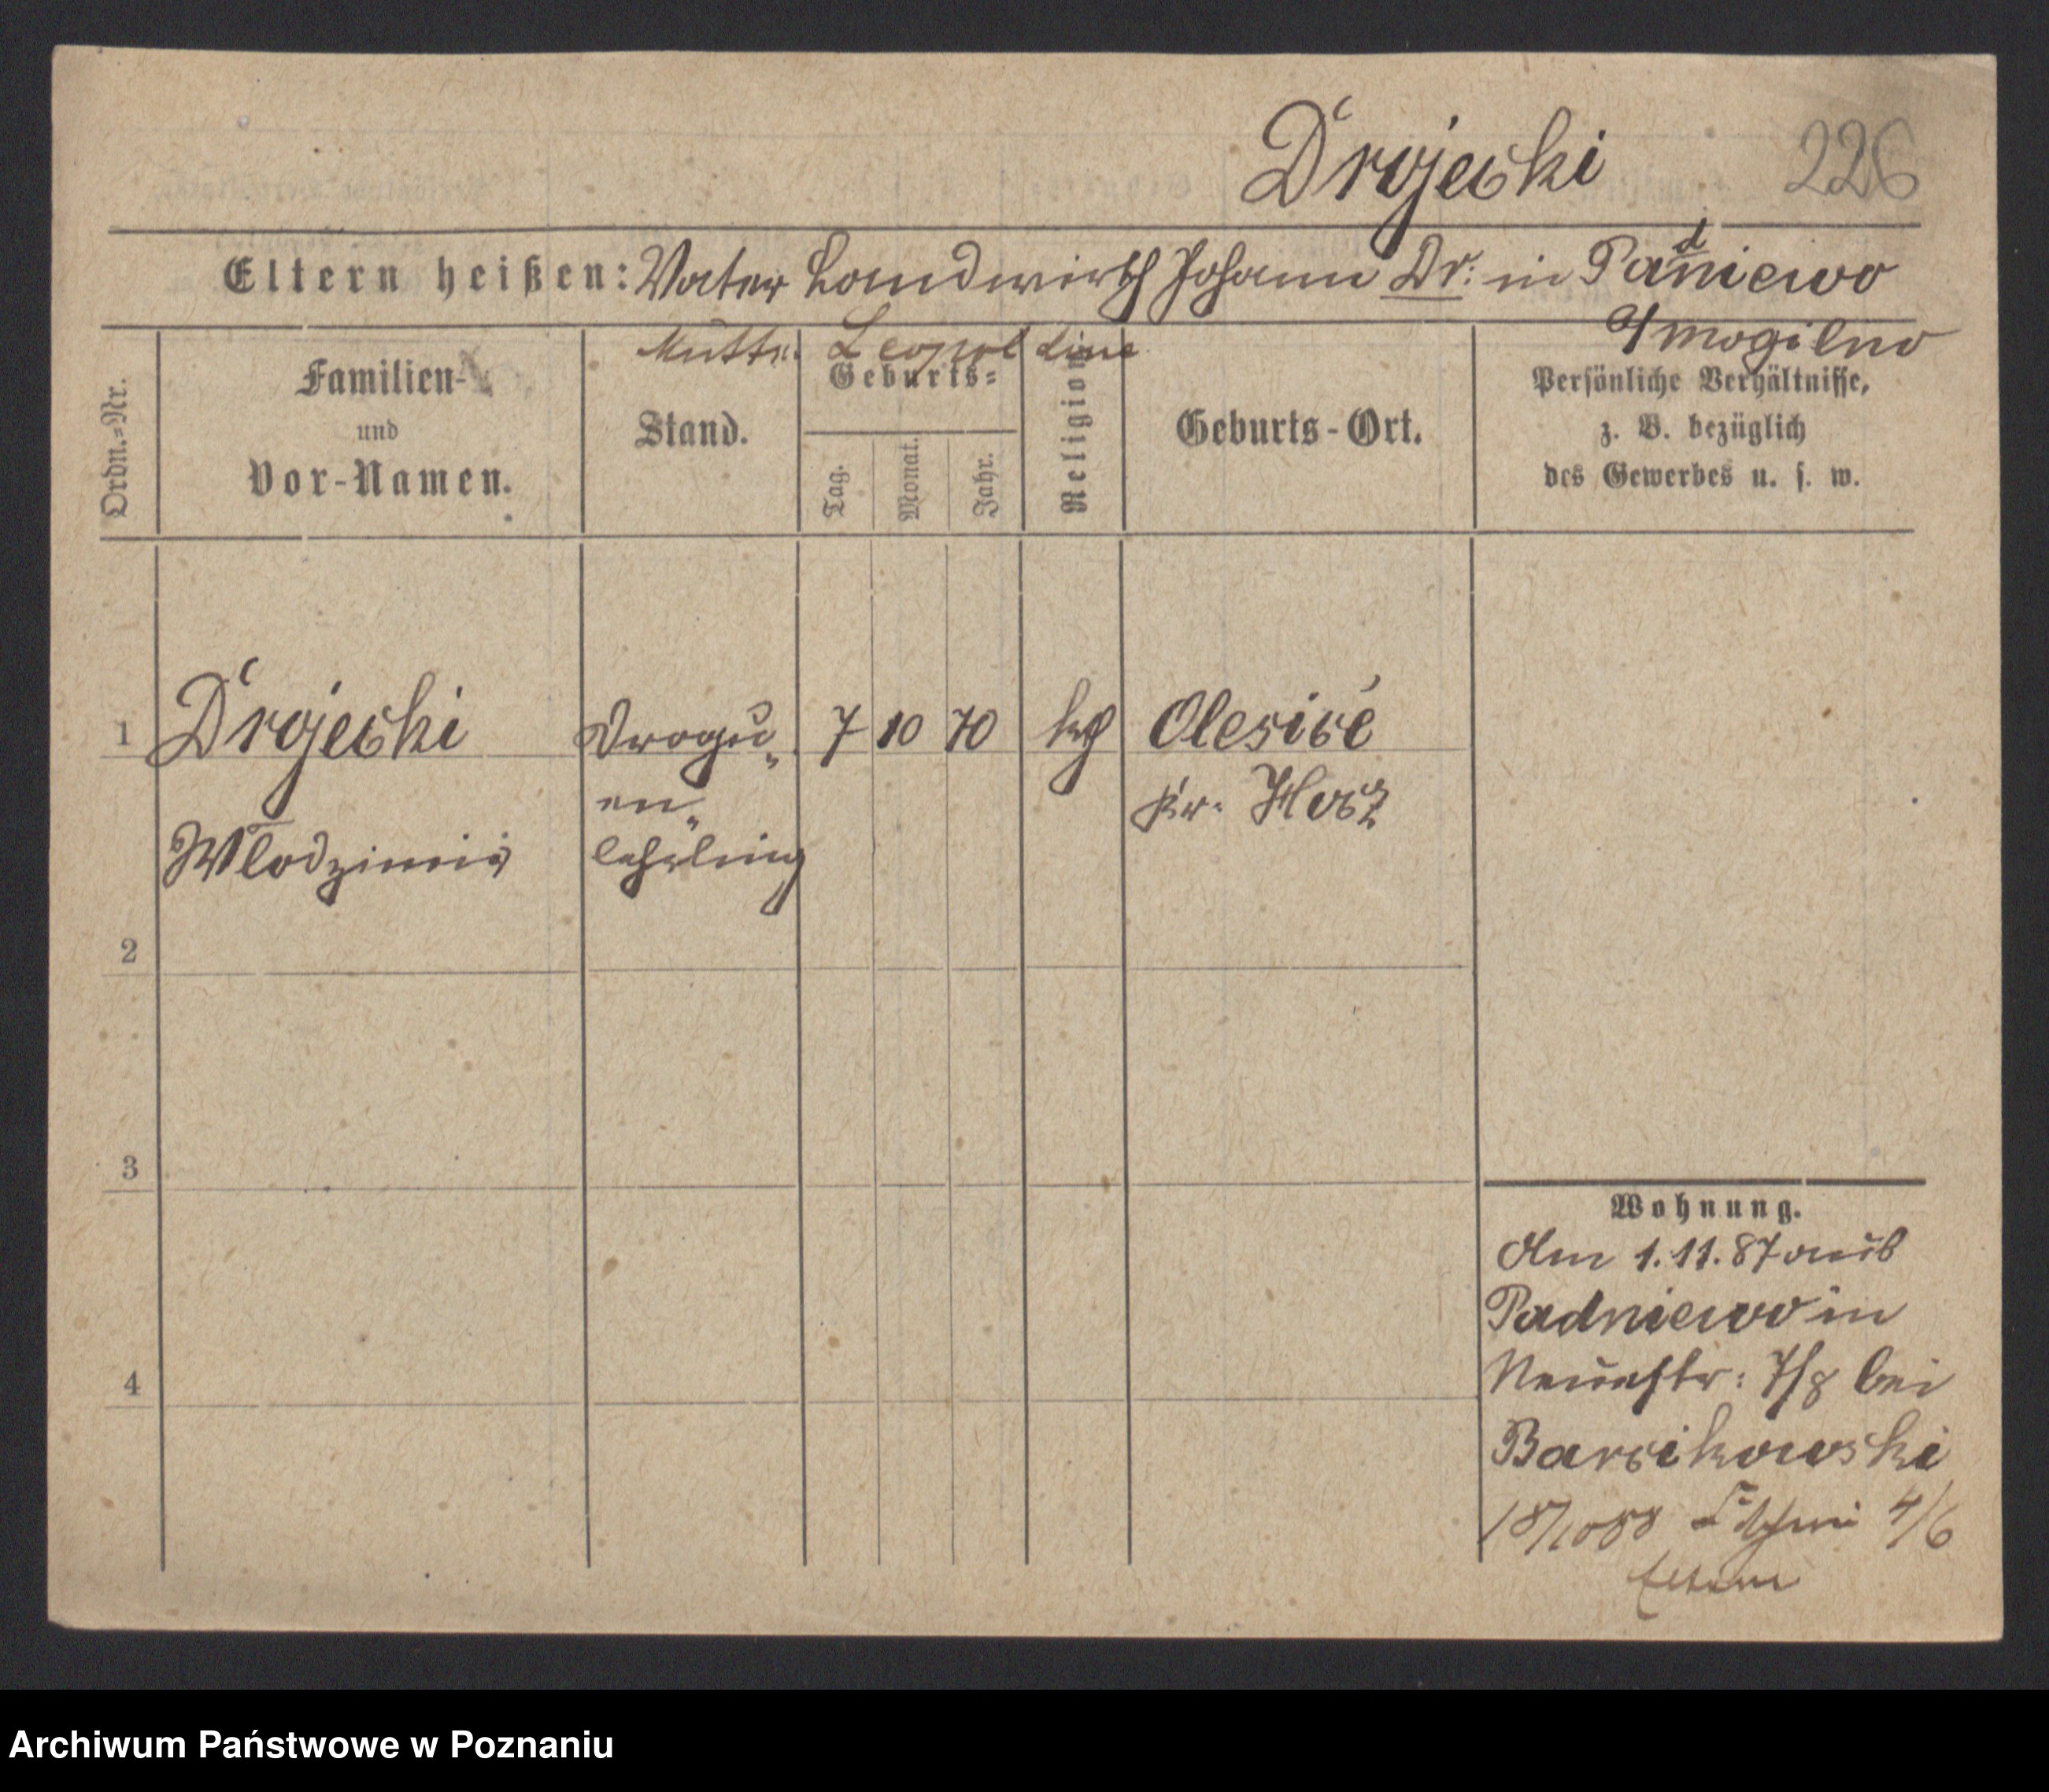 Drojecki 226
Eltern heißen: Vater Landwirth Johann Dr. in Padniewo
Mutter Leopoldine
/ Mogilno
Ordn.=Nr.
Familien-
und
Vor-Namen.
Stand.
Geburts=
Tag.
Monat.
Jahr.
Religion
Geburts-Ort.
Persönliche Verhältnisse,
z. B. bezüglich
des Gewerbes u. s. w.
1 Drojecki Drogu„ 7 10 70 kth
en„ Kr.
Wlodzimir lehrling
2
3
4
Wohnung.
Am 1.11.87 aus
Padniewo in
Neuestr: 7/8 bei
Barcikowski
18/10 88 4/6
Eltern
Archiwum Państwowe w Poznaniu